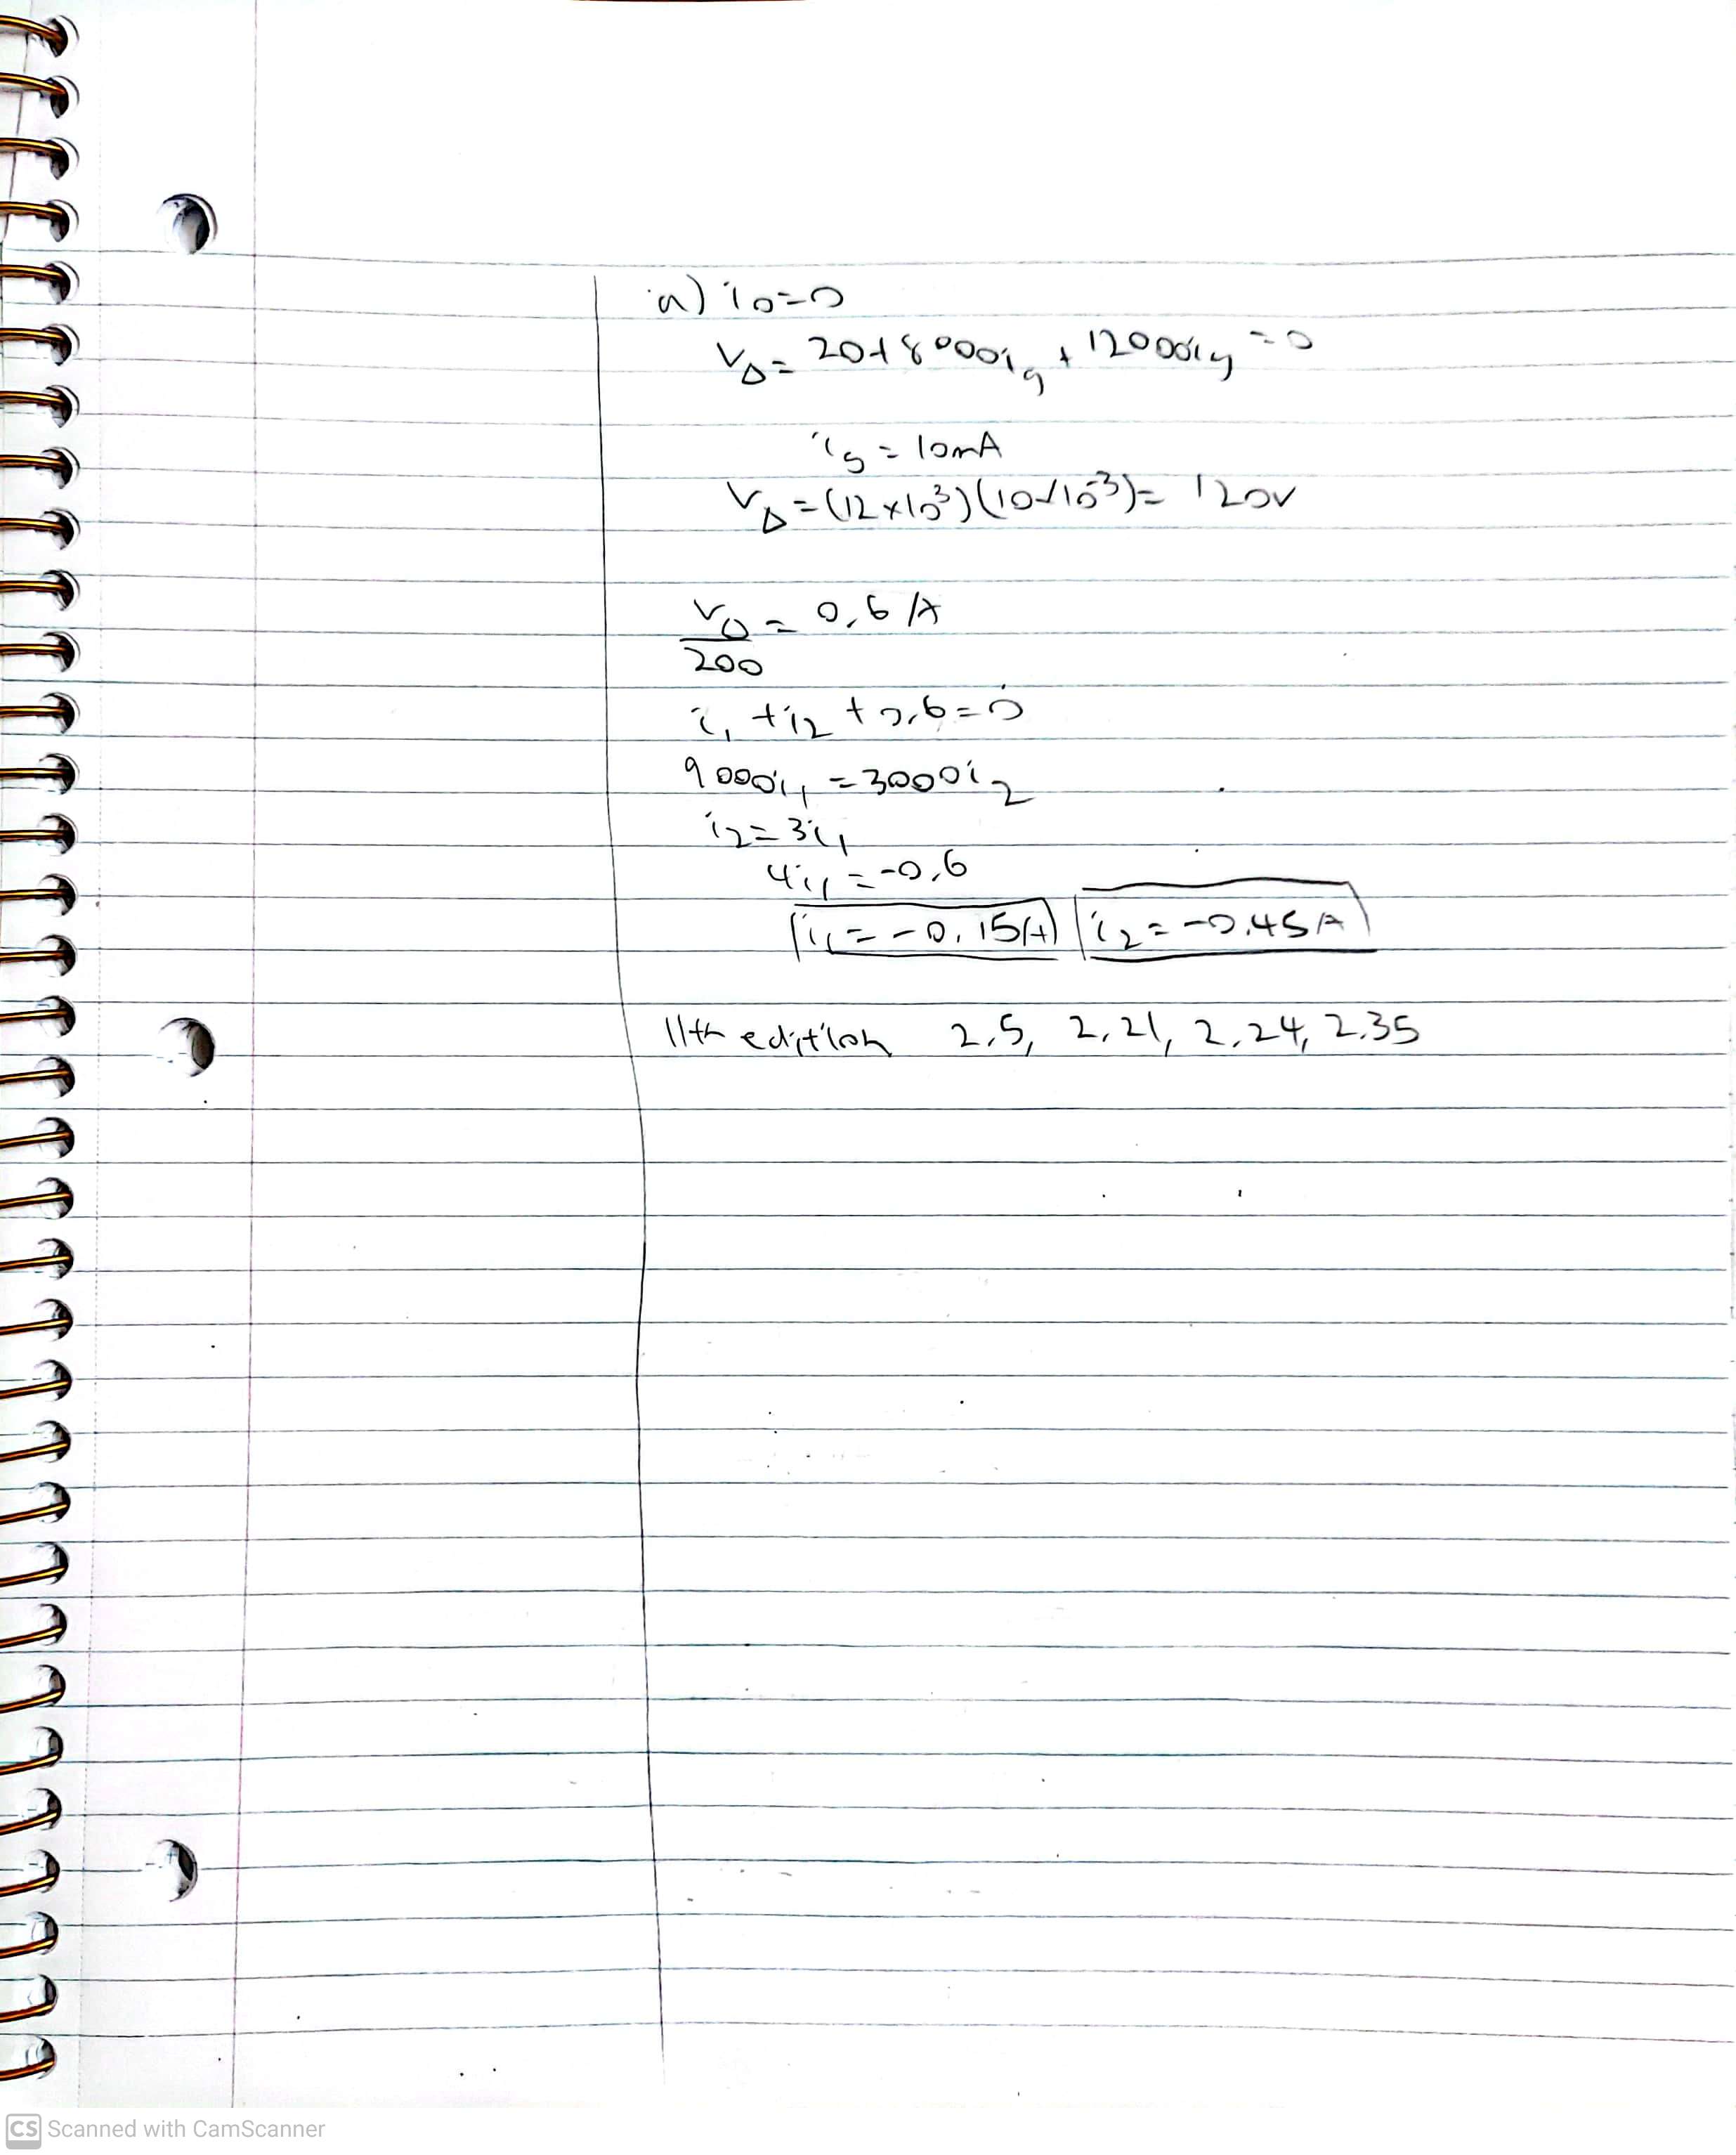 a) i₀=0
V_Δ = 20+8000i_g + 12000i_g = 0
i_g = 10mA
V_Δ = (12×10³)(10×10⁻³) = 120V
V_Δ/200 = 0,6 A
i₁ + i₂ + 0,6 = 0
9000i₁ = 3000i₂
i₂ = 3i₁
4i₁ = -0,6
i₁ = -0.15A i₂ = -0.45A
11th edition 2.5, 2.21, 2.24, 2.35
CS Scanned with CamScanner